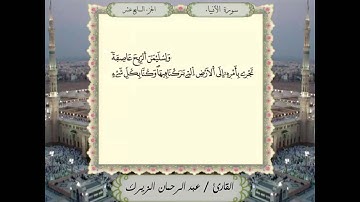 سورة الأنبياء
الجزء السابع عشر
وَلِسُلَيْمَٰنَ اَ۬لرِّيحَ عَاصِفَةٗ
تَجْرِے بِأَمْرِهِۦٓ إِلَى اَ۬لْأَرْضِ اِ۬لتِے بَٰرَكْنَا فِيهَاۖ وَكُنَّا بِكُلِّ شَےْءٍ
القارئ / عبد الرحمان الزيرك